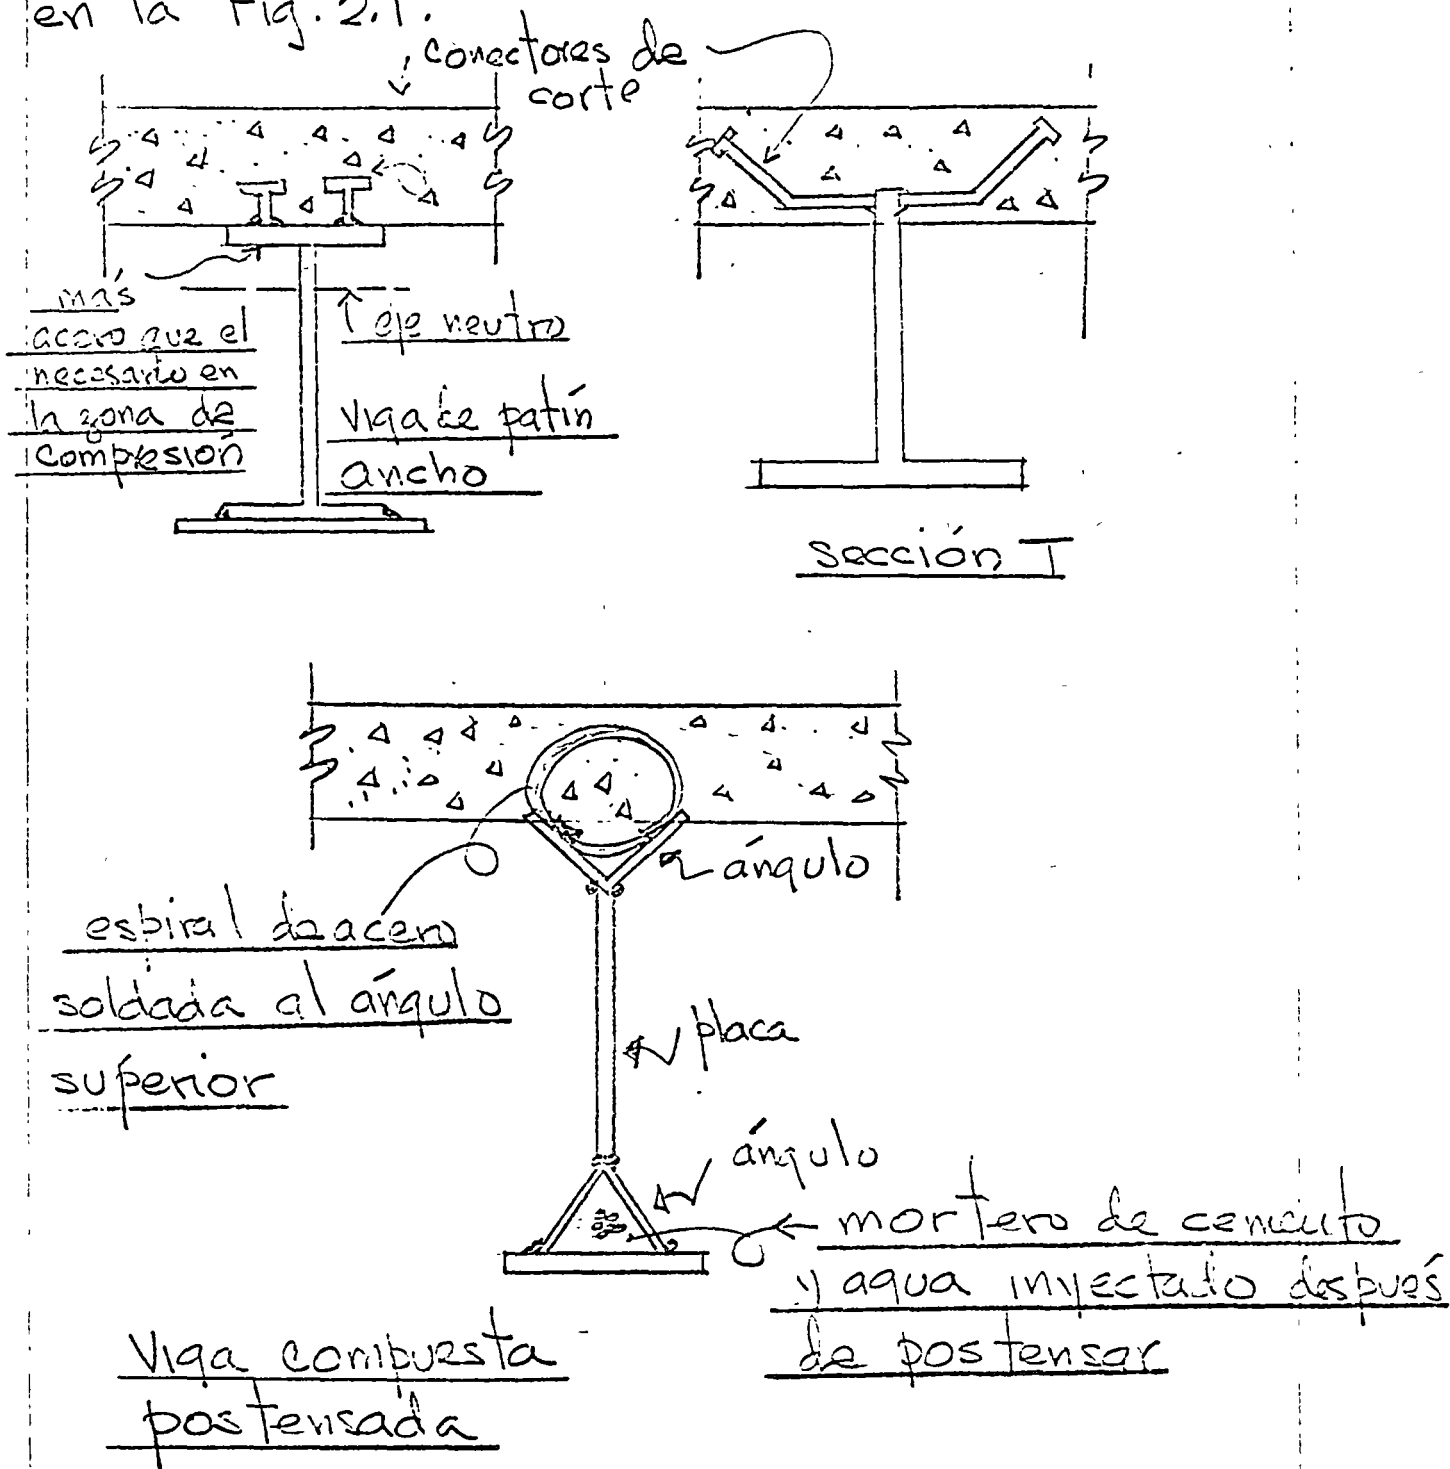 en la Fig. 2.1.
conectores de
corte
más
acero que el
necesario en
la zona de
compresión
eje neutro
Viga de patín
ancho
sección T
ángulo
espiral de acero
soldada al ángulo
superior
placa
ángulo
mortero de cemento
y agua inyectado después
de postensar
Viga compuesta
postensada